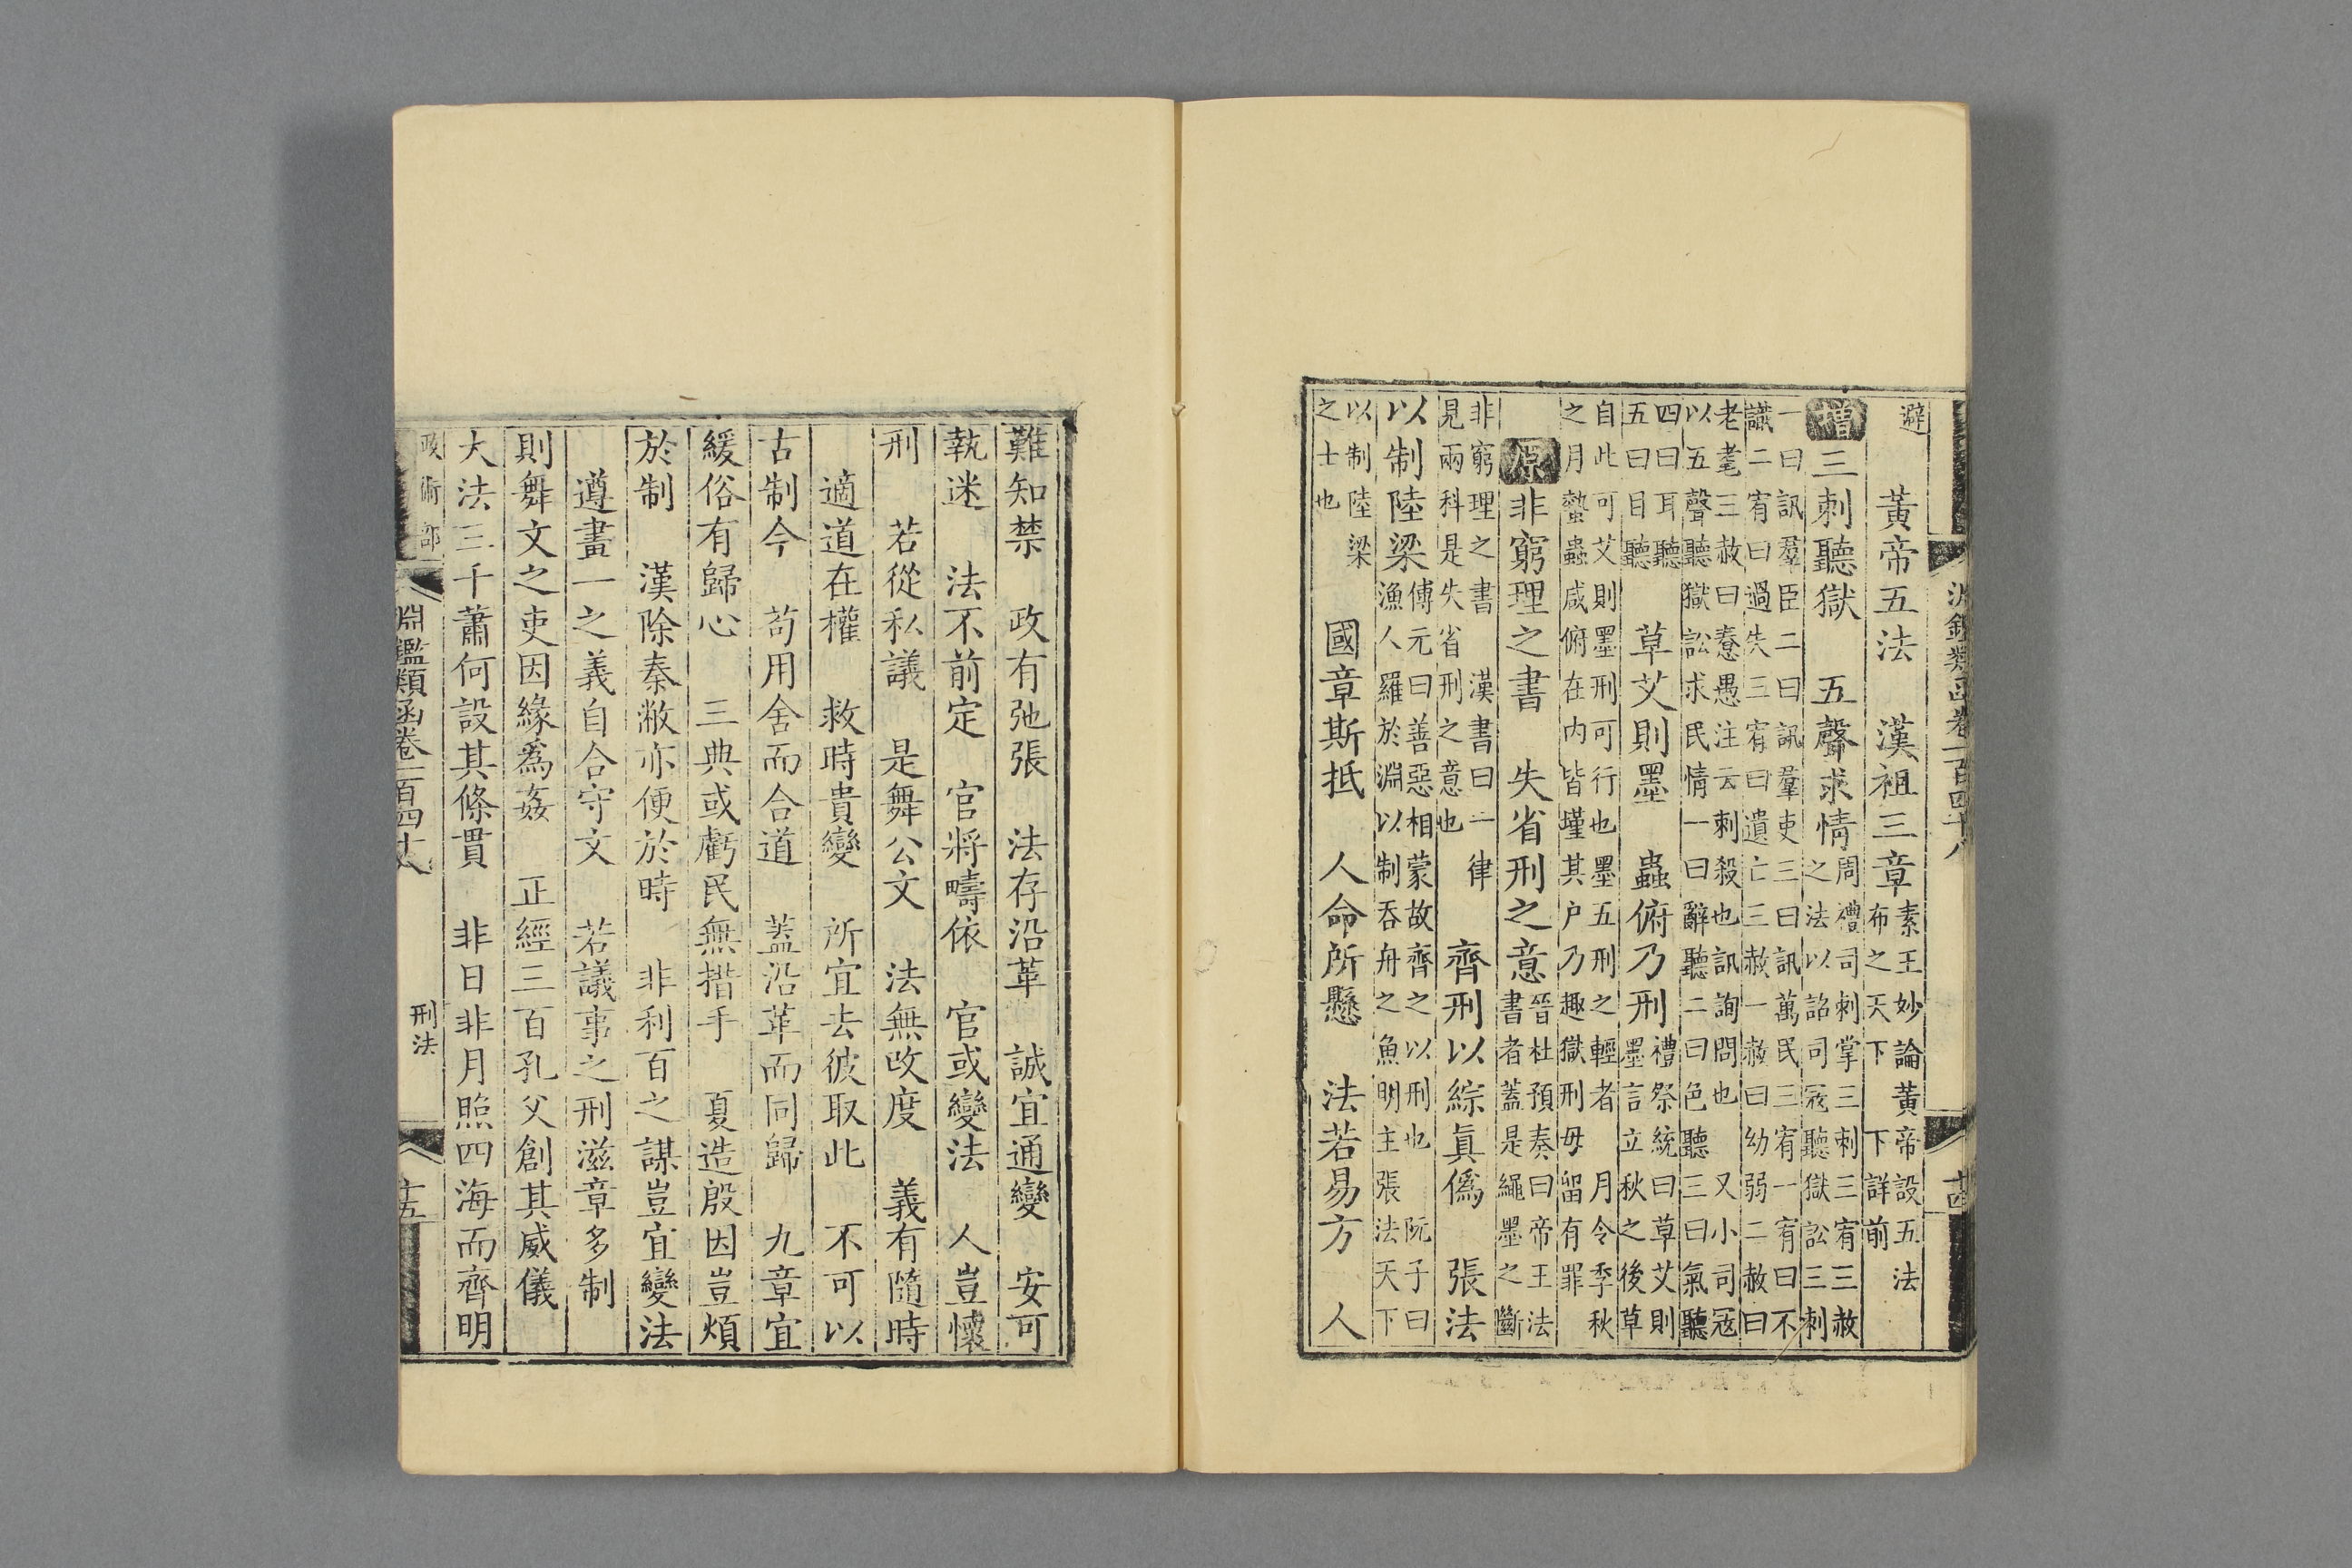 淵鑑類函卷一百四十八
十四
避
黃帝五法　漢祖三章素王妙論黃帝設五法
布之天下下詳前
增三刺聽獄　五聲求情周禮司刺掌三刺三宥三赦
之法以詔司寇聽獄訟三刺
一曰訊羣臣二曰訊羣吏三曰訊萬民三宥一宥曰不
識二宥曰過失三宥曰遺亡三赦一赦曰幼弱二赦曰
老耄三赦曰憃愚注云刺殺也訊詢問也　又小司寇
以五聲聽獄訟求民情一曰辭聽二曰色聽三曰氣聽
四曰耳聽
五曰目聽
草艾則墨　蟲俯乃刑禮祭統曰草艾則
墨言立秋之後草
自此可艾則墨刑可行也墨五刑之輕者　月令季秋
之月蟄蟲咸俯在内皆墐其户乃趣獄刑毋留有罪
原非窮理之書　失省刑之意晉杜預奏曰帝王法
書者蓋是繩墨之斷
非窮理之書　漢書曰一律
見兩科是失省刑之意也
齊刑以綜眞僞　張法
以制陸梁傅元曰善惡相蒙故齊之以刑也　阮子曰
漁人羅於淵以制吞舟之魚明主張法天下
以制陸梁
之士也
國章斯抵　人命所懸　法若易方　人
難知禁　政有弛張　法存沿革　誠宜通變　安可
執迷　法不前定　官將疇依　官或變法　人豈懷
刑　若從私議　是舞公文　法無改度　義有隨時
適道在權　救時貴變　所宜去彼取此　不可以
古制今　苟用舍而合道　蓋沿革而同歸　九章宜
緩俗有歸心　三典或虧民無措手　夏造殷因豈煩
於制　漢除秦敝亦便於時　非利百之謀豈宜變法
遵畫一之義自合守文　若議事之刑滋章多制
則舞文之吏因緣爲姦　正經三百孔父創其威儀
大法三千蕭何設其條貫　非日非月照四海而齊明
政術部
淵鑑類函卷一百四十八
刑法
十五